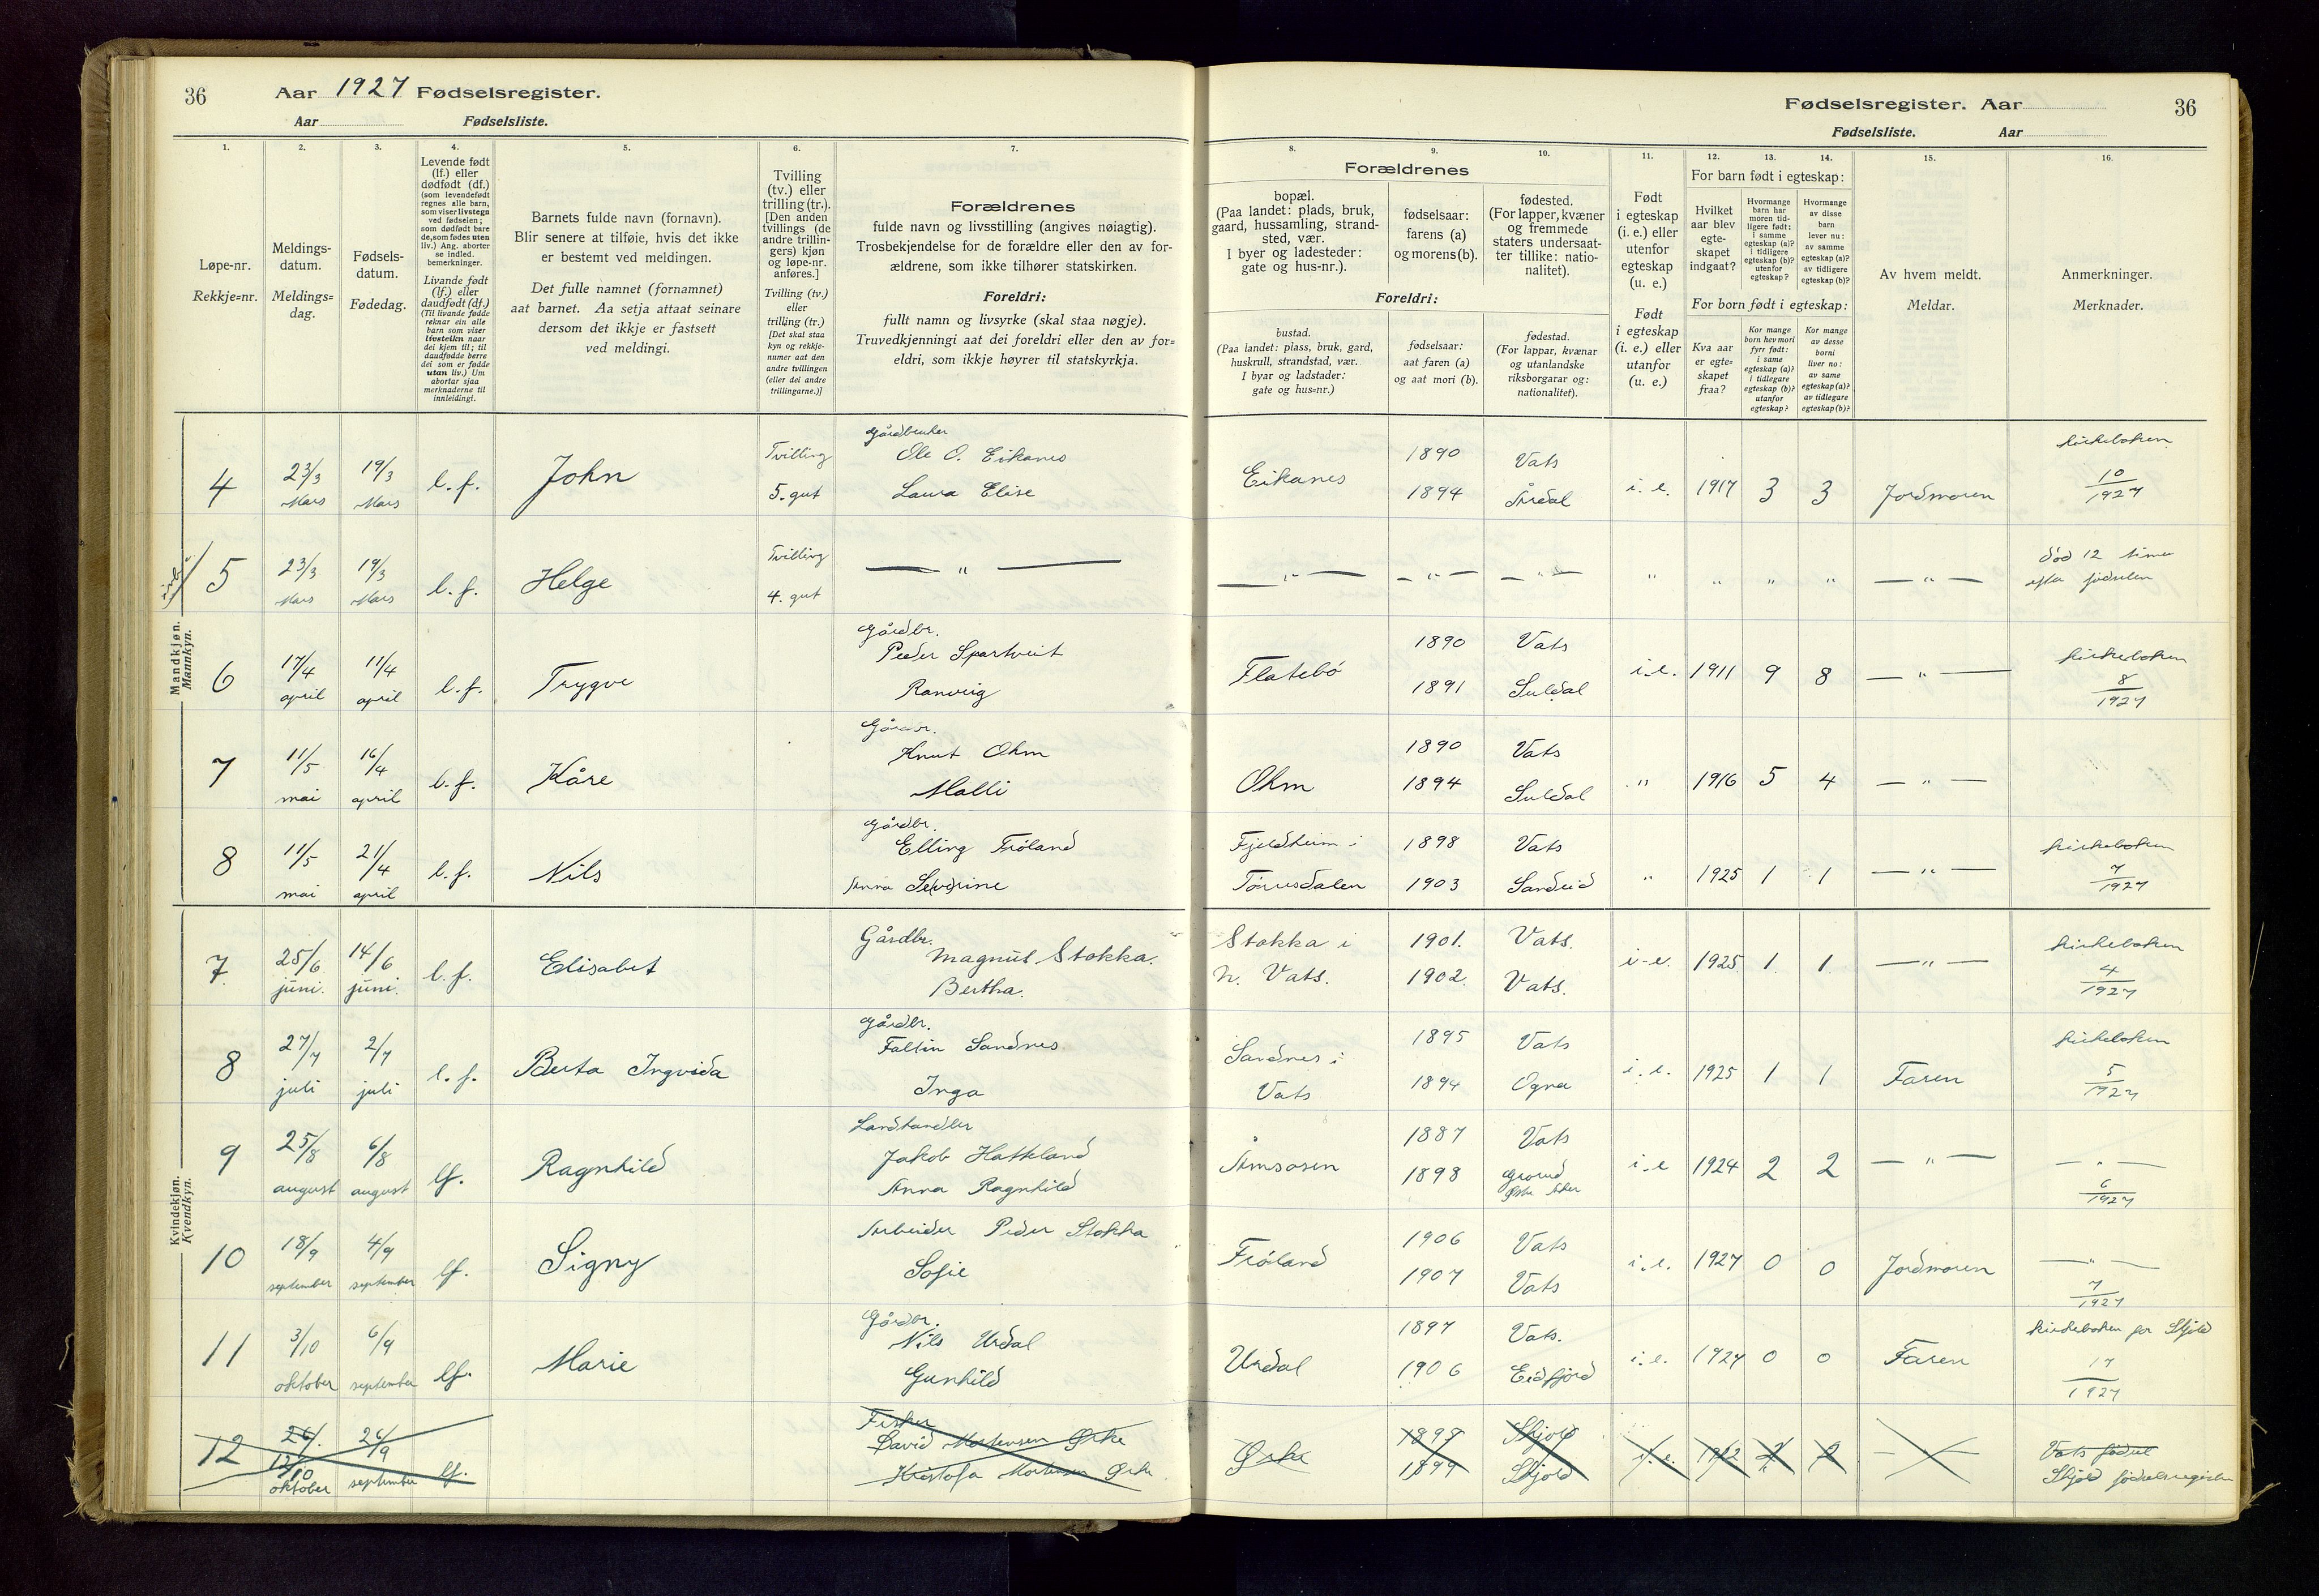 36 Aar 1927 Fødselsregister.
Aar Fødselsliste.
Fødselsregister. Aar 36
Fødselsliste. Aar
1. 2. 3. 4. 5. 6. 7.
Løpe-nr.
Rekkje=nr.
Meldings-
datum.
Meldings=
dag.
Fødsels-
datum.
Fødedag.
Levende født
(lf.) eller
dødfødt (df.)
(som levendefødt
regnes alle barn,
som viser livstegn
ved fødselen;
som dødfødt bare
de, som fødes uten
liv.) Ang. aborter
se indled.
bemerkninger.
Livande født
(lf.) eller
daudfødt (df.)
(Til livande fødde
reknar ein alle
barn som viser
livsteikn naar
dei kjem til; til
daudfødde berre
dei som er fødde
utan liv.) Um
abortar sjaa
merknaderne til
innleidingi.
Barnets fulde navn (fornavn).
Blir senere at tilføie, hvis det ikke
er bestemt ved meldingen.
Det fulle namnet (fornamnet)
aat barnet. Aa setja attaat seinare
dersom det ikkje er fastsett
ved meldingi.
Tvilling
(tv.) eller
trilling (tr.).
[Den anden
tvillings (de
andre trillin-
gers) kjøn
og løpe-nr.
anføres.]
Tvilling (tv.)
eller
trilling (tr.)
[Det skal staa
kyn og rekkje-
numer aat den
andre tvillingen
(eller dei andre
trillingarne.)]
Forældrenes
fulde navn og livsstilling (angives nøiagtig).
Trosbekjendelse for de forældre eller den av for-
ældrene, som ikke tilhører statskirken.
Foreldri:
fullt namn og livsyrke (skal staa nøgje).
Truvedkjenningi aat dei foreldri eller den av for=
eldri, som ikkje høyrer til statskyrkja.
8. 9. 10. 11. 12. 13. 14. 15. 16.
Forældrenes
bopæl.
(Paa landet: plads, bruk,
gaard, hussamling, strand-
sted, vær.
I byer og ladesteder:
gate og hus-nr.).
fødselsaar:
farens (a)
og morens (b).
fødested.
(For lapper, kvæner
og fremmede
staters undersaat-
ter tillike: natio-
nalitet).
Foreldri:
bustad.
(Paa landet: plass, bruk, gard,
huskrull, strandstad, vær.
I byar og ladstader:
gate og hus=nr.)
fødselsaar:
aat faren (a)
og aat mori (b).
fødestad.
(For lappar, kvænar
og utanlandske
riksborgarar og:
nationalitet).
Født
i egteskap
(i. e.) eller
utenfor
egteskap
(u. e.)
Født
i egteskap
(i. e.) eller
utanfor
(u. e.)
For barn født i egteskap:
Hvilket
aar blev
egte-
skapet
indgaat?
Hvormange
barn har
moren tid-
ligere født:
i samme
egteskap (a)?
i tidligere
egteskap (b)?
utenfor
egteskap?
Hvormange
av disse
barn
lever nu:
av samme
egteskap (a)?
av tidligere
egteskap (b)?
For born født i egteskap:
Kva aar
er egte=
skapet
fraa?
Kor mange
born hev mori
fyrr født:
i same
egteskap (a)?
i tidlegare
egteskap (b)?
utanfor
egteskap?
Kor mange
av desse
borni
liver no:
av same
egteskap (a)?
av tidlegare
egteskap (b)?
Av hvem meldt.
Meldar.
Anmerkninger.
Merknader.
Mandkjøn.
Mannkyn.
4 23/3 Mars 19/3 Mars l. f. John Tvilling 5. gut Gårdbruker
Ole O. Eikanes
Laura Elise
Eikanes 1890 1894 Vats Årdal i. e. 1917 3 3 Jordmoren kirkeboken 10/1927
5 23/3 Mars 19/3 Mars l. f. Helge Tvilling 4. gut — " —
— " — — " — — " — " " " " — " — død 12 timer
efter fødselen
6 17/4 april 11/4 april l. f. Trygve Gårdbr.
Peder Spartveit
Ranveig
Flatebø 1890 1891 Vats Suldal i. e. 1911 9 8 — " — kirkeboken 8/1927
7 11/5 mai 16/4 april l. f. Kåre Gårdbr.
Knut Ohm
Malli
Ohm 1890 1894 Vats Suldal " 1916 5 4 — " —
8 11/5 mai 21/4 april l. f. Nils Gårdbr.
Elling Frøland
Anna Se(ve)rine
Fjeldheim i
Tørresdalen 1898 1903 Vats Sandeid " 1925 1 1 — " — kirkeboken 7/1927
Kvindekjøn.
Kvendkyn.
7. 25/6 juni. 14/6 juni. l. f. Elisabet Gårdbr.
Magnus Stokka.
Bertha.
Stokka i
n. Vats. 1901. 1902. Vats. Vats. i-e. 1925. 1. 1. — " — kirkeboken 4/1927
8 27/7 juli 2/7 juli l. f. Berta Ingvida Gårdbr.
Faltin Sandnes
Inga
Sandnes i
Vats 1895 1894 Vats Ogna i. e. 1925 1 1 Faren kirkeboken 5/1927
9 25/8 august 6/8 august lf. Ragnhild Landhandler
Jakob Hatteland
Anna Ragnhild
Åmsosen 1887 1898 Vats Grorud
Østre Aker i. e 1924 2 2 — " — — " — 6/1927
10 18/9 september 4/9 september lf. Signy Arbeider Peder Stokka
Sofie
Frøland 1906 1907 Vats Vats i. e. 1927 0 0 Jordmoren — " — 7/1927
11 3/10 oktober 6/9 september lf. Marie Gårdbr.
Nils Urdal
Gunhild
Urdal 1897 1906 Vats. Eidfjord i. e. 1927 0 0 Faren kirkeboken for Skjold 17/1927
12 26/. 12/10 oktober 26/9 september lf. Fisker
David Mortensen Ørke
Kristofa Mortensen Ørke.
Ørke 1898 1899 Skjold Skjold i. e. 1922 2 2 — Vats fødsel
Skjold fødselsregister